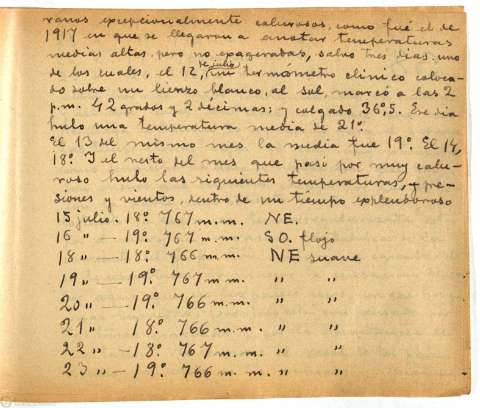 ranos excepcionalmente calurosos, como fué el de
1917 en que se llegaron a anotar temperaturas
medias altas, pero no exageradas, salvo tres dias, uno
de los cuales, el 12, de julio, un termómetro clínico coloca-
do sobre un lienzo blanco, al sol, marcó a las 2
p.m. 42 grados y 2 décimas; y colgado 36º,5. Ese dia
hubo una temperatura media de 21º.
El 13 del mismo mes la media fue 19º. El 14,
18º. I el resto del mes que pasó por muy calu-
roso hubo las siguientes temperaturas, y pre-
siones y vientos, dentro de un tiempo explendoroso
15 julio. 18º. 767 m.m. NE.
16 " — 19º. 767 m.m. SO. flojo
18 " — 18º. 766 m.m. NE suave
19 " — 19º. 767 m.m. " "
20 " — 19º. 766 m.m. " "
21 " 18º. 766 m.m. " "
22 " — 18º. 767 m.m. " "
23 " — 19º. 766 m.m. " "